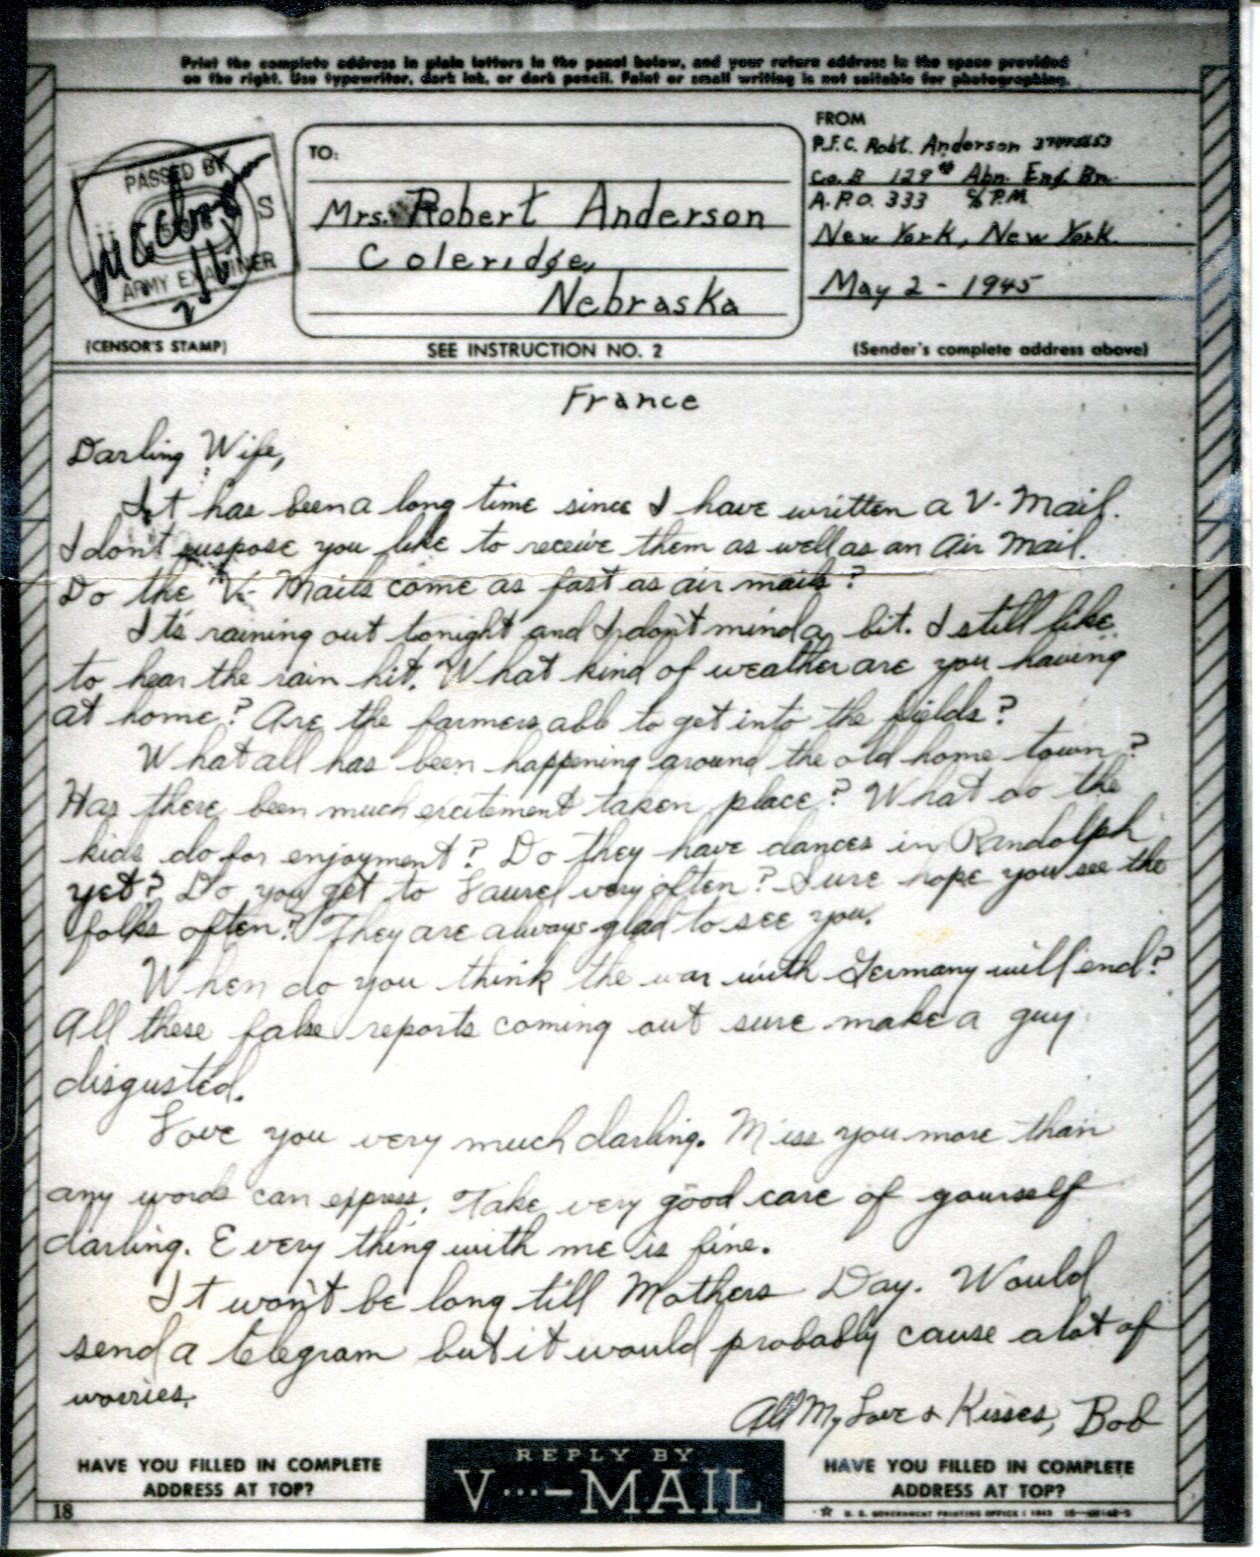 Print the complete address in plain letters in the panel below, and your return address in the space provided
on the right. Use typewriter, dark ink, or dark pencil. Faint or small writing is not suitable for photographing.
FROM
P.F.C. Robt. Anderson
Co. B 129th Abn. Eng. Bn.
A.P.O. 333 % P.M.
New York, New York.
May 2 - 1945
(Sender's complete address above)
TO:
Mrs. Robert Anderson
Coleridge,
Nebraska
SEE INSTRUCTION NO. 2
PASSED BY
S
ARMY EXAMINER
(CENSOR'S STAMP)
France
Darling Wife,
It has been a long time since I have written a V-Mail.
I don't suspose you like to receive them as well as an Air Mail.
Do the V-Mails come as fast as air mails?
It's raining out tonight and I don't mind a bit. I still like
to hear the rain hit. What kind of weather are you having
at home? Are the farmers abb to get into the fields?
What all has been happening around the old home town?
Has there been much excitement taken place? What do the
kids do for enjoyment? Do they have dances in Randolph
yet? Do you get to Laurel very often? Sure hope you see the
folks often? They are always glad to see you.
When do you think the war with Germany will end?
All these false reports coming out sure make a guy
disgusted.
Love you very much darling. Miss you more than
any words can express. Take very good care of yourself
darling. Every thing with me is fine.
It won't be long till Mothers Day. Would
send a telegram but it would probably cause a lot of
worries.
All My Love & Kisses, Bob
HAVE YOU FILLED IN COMPLETE
ADDRESS AT TOP?
REPLY BY
V···—MAIL
HAVE YOU FILLED IN COMPLETE
ADDRESS AT TOP?
18
U. S. GOVERNMENT PRINTING OFFICE : 1943